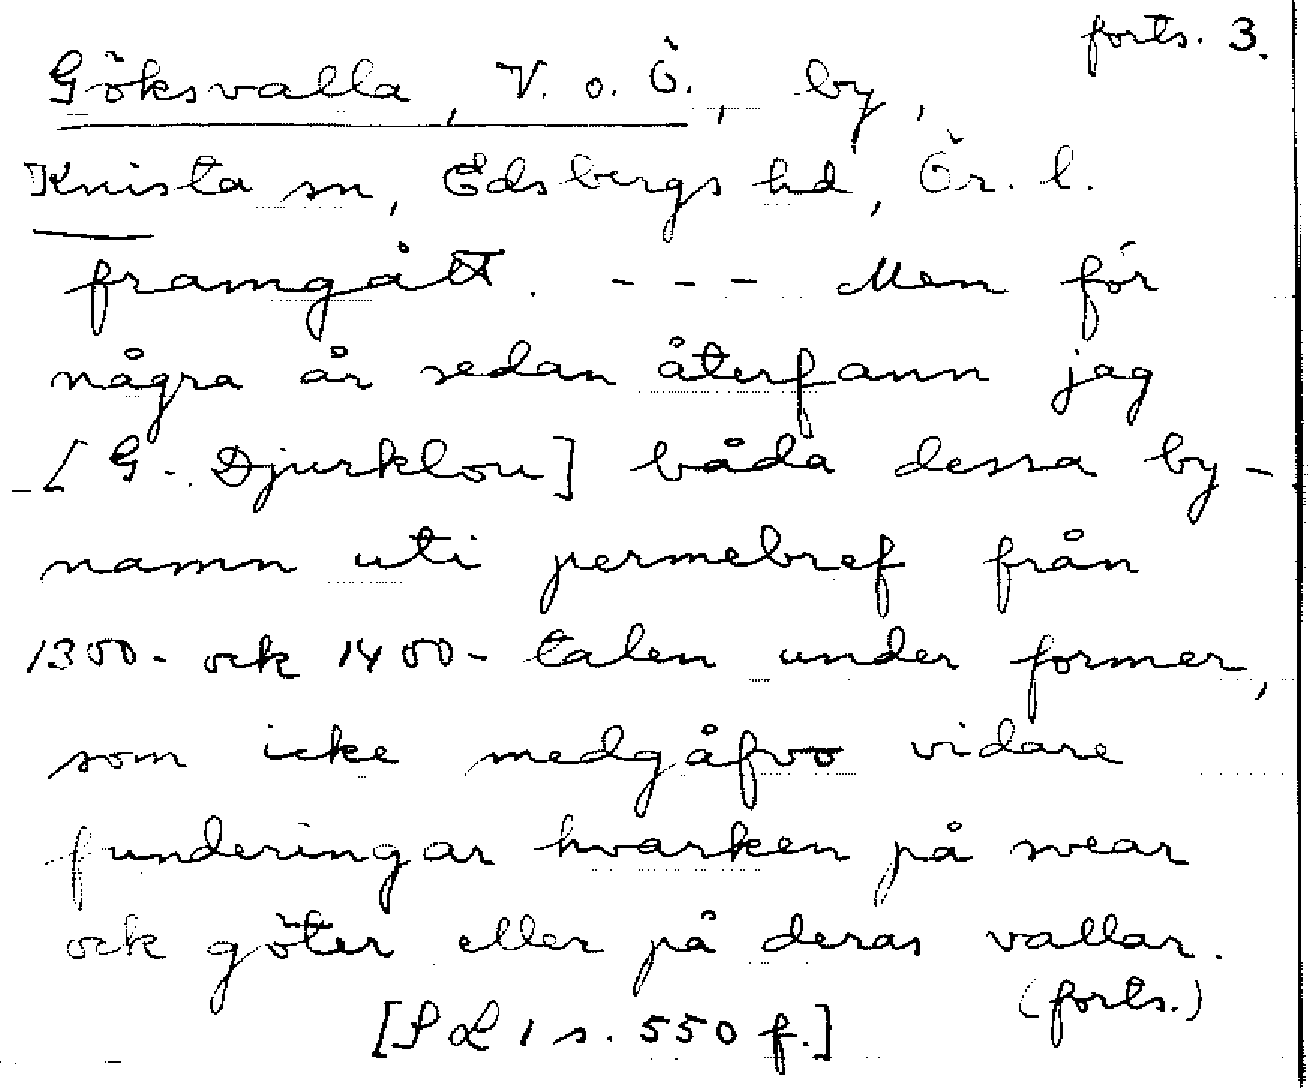 forts. 3.
Göksvalla, V. o. Ö., by,
Knista sn, Edsbergs hd, Ör. l.
framgått. - - - Men för
några år sedan återfann jag
[G. Djurklou] båda dessa by-
namn uti permebref från
1300- ock 1400-talen under former,
som icke medgåfvo vidare
funderingar hvarken på svear
ock göter eller på deras vallar.
(forts.)
[SL 1 s. 550 f.]